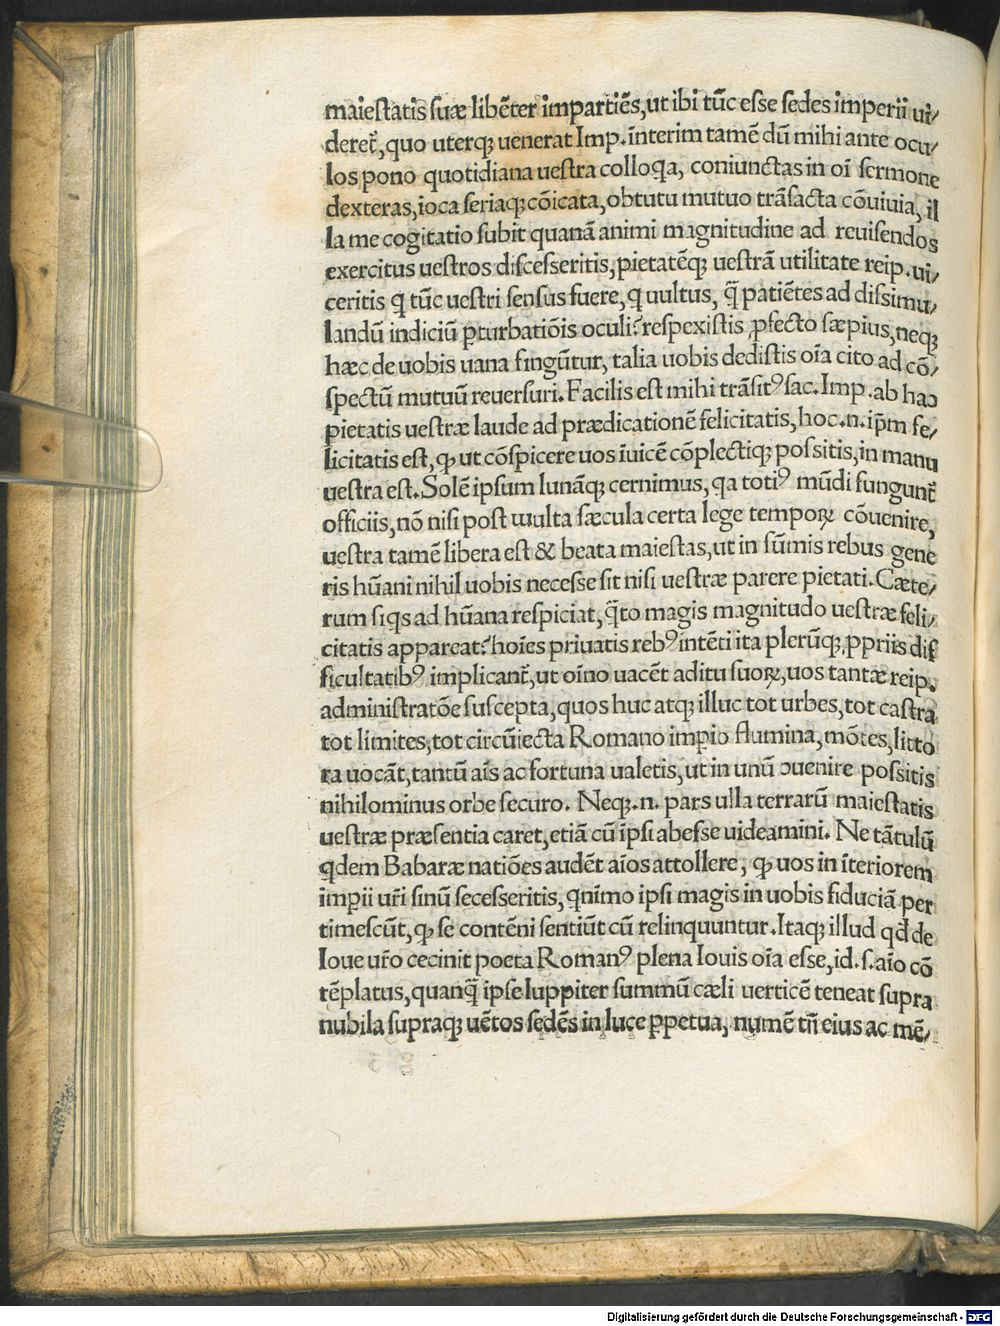 maiestatis suæ libẽter impartiẽs,ut ibi tũc esse sedes imperii ui/
deret᷑,quo uterqꝫ uenerat Imp.ĩnterim tamẽ dũ mihi ante ocu/
los pono quotidiana uestra colloq̃a, coniunctas in oĩ sermone
dexteras,ioca seriaqꝫ cõicata,obtutu mutuo trãsacta cõuiuia, il
la me cogitatio subit quanã animi magnitudine ad reuisendos
exercitus uestros discesseritis,pietatẽqꝫ uestrã utilitate reip.ui/
ceritis q̃ tũc uestri sensus fuere,q̃ uultus, q̃ patiẽtes ad dissimu/
landũ indiciũ ꝑturbatiõis oculi?respexistis ꝓfecto sæpius,neqꝫ
hæc de uobis uana fingũtur,talia uobis dedistis oĩa cito ad cõ/
spectũ mutuũ reuersuri.Facilis est mihi trãsitꝰ sac.Imp.ab hac
pietatis uestræ laude ad prædicationẽ felicitatis,hoc.n.ip̃m fe/
licitatis est,ꝙ ut cõspicere uos ĩuicẽ cõplectiqꝫ possitis,in manu
uestra est.Solẽ ipsum lunãqꝫ cernimus,q̃a totiꝰ mũdi fungunt᷑
officiis,nõ nisi post multa sæcula certa lege temporꝝ cõuenire,
uestra tamẽ libera est & beata maiestas,ut in sũmis rebus gene
ris hũani nihil uobis necesse sit nisi uestræ parere pietati.Cæte/
rum siq̃s ad hũana respiciat,q̃to magis magnitudo uestræ feli/
citatis appareat?hoĩes priuatis rebꝰ intẽti ita plerũqꝫ ꝓpriis dif
ficultatibꝰ implicant᷑,ut oĩno uacẽt aditu suorꝝ,uos tantæ reip.
administratõe suscepta,quos huc atqꝫ illuc tot urbes,tot castra
tot limites,tot circũiecta Romano impio flumina,mõtes,litto
ra uocãt,tantũ aĩs ac fortuna ualetis,ut in unũ ꝯuenire possitis
nihilominus orbe securo. Neqꝫ.n. pars ulla terrarũ maiestatis
uestræ præsentia caret,etiã cũ ĩpsi abesse uideamini. Ne tãtulũ
q̃dem Babaræ natiões audẽt aĩos attollere, ꝙ uos in ĩteriorem
impii ur̃i sinũ secesseritis,q̃nimo ipsi magis in uobis fiduciã per
timescũt,ꝙ se contẽni sentiũt cũ relinquuntur.Itaqꝫ illud qd̃ de
Ioue ur̃o cecinit poeta Romanꝰ plena Iouis oĩa esse,id.s.aĩo cõ
tẽplatus,quanq̃ ipse Iuppiter summũ cæli uerticẽ teneat supra
nubila supraqꝫ uẽtos sedẽs in luce ꝑpetua, numẽ tñ eius ac mẽ/
Digitalisierung gefördert durch die Deutsche Forschungsgemeinschaft - DFG